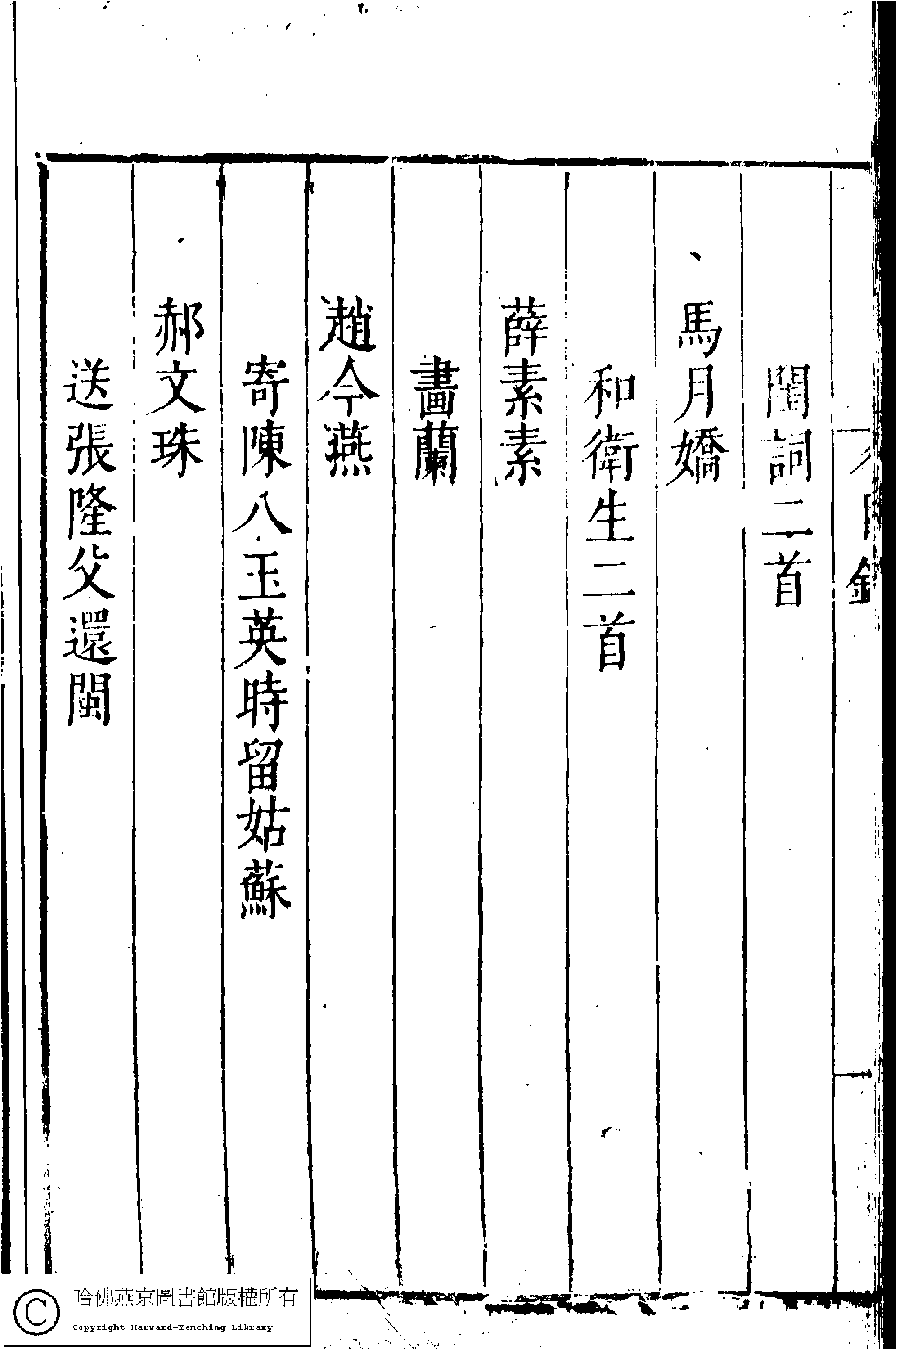 目錄
閨詞二首
馬月嬌
和衛生二首
薛素素
畫蘭
趙今燕
寄陳八玉英時留姑蘇
郝文珠
送張隆父還閩
哈佛燕京圖書館版權所有
Copyright Harvard-Yenching Library